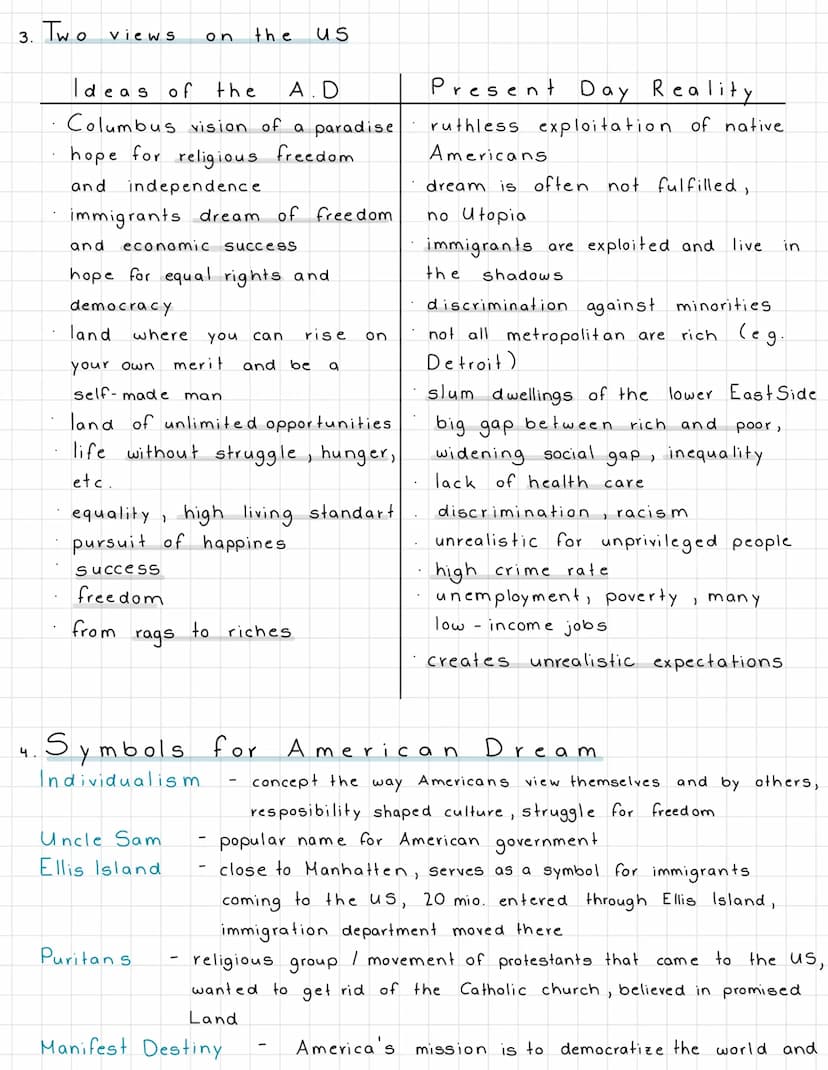 3. Two views on the US
Ideas of the A.D
· Columbus vision of a paradise
· hope for religious freedom
and independence
· immigrants dream of freedom
and economic success
hope for equal rights and
democracy
· land where you can rise on
your own merit and be a
self-made man
· land of unlimited opportunities
· life without struggle, hunger,
etc.
· equality, high living standart
· pursuit of happines
· success
· freedom
· from rags to riches
Present Day Reality
· ruthless exploitation of native
Americans
· dream is often not fulfilled,
no Utopia
· immigrants are exploited and live in
the shadows
· discrimination against minorities
· not all metropolitan are rich (eg.
Detroit)
· slum dwellings of the lower EastSide
· big gap between rich and poor,
widening social gap, inequality
· lack of health care
· discrimination, racism
· unrealistic for unprivileged people
· high crime rate
· unemployment, poverty, many
low-income jobs
· creates unrealistic expectations
4. Symbols for American Dream
Individualism - concept the way Americans view themselves and by others,
resposibility shaped culture, struggle for freedom
Uncle Sam - popular name for American government
Ellis Island - close to Manhatten, serves as a symbol for immigrants
coming to the US, 20 mio. entered through Ellis Island,
immigration department moved there
Puritans - religious group / movement of protestants that came to the US,
wanted to get rid of the Catholic church, believed in promised
Land
Manifest Destiny - America's mission is to democratize the world and